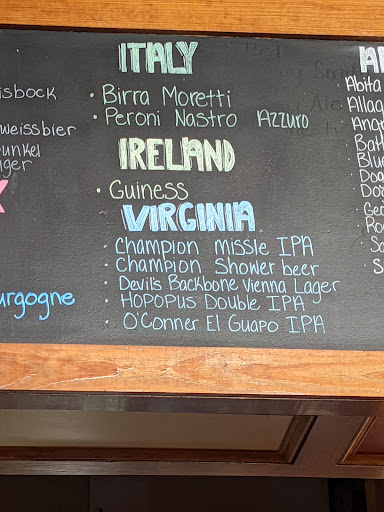 ITALY
· Birra Moretti
· Peroni Nastro Azzuro
IRELAND
· Guiness
VIRGINIA
· Champion missle IPA
· Champion Shower beer
· Devil's Backbone Vienna Lager
· HOPOPUS Double IPA
· O'Conner El Guapo IPA
isbock
weissbier
unkel
ager
urgogne
A
Abita
Allag
Ang
Bal
Blue
Dog
Do
Ge
Ro
Sa
S